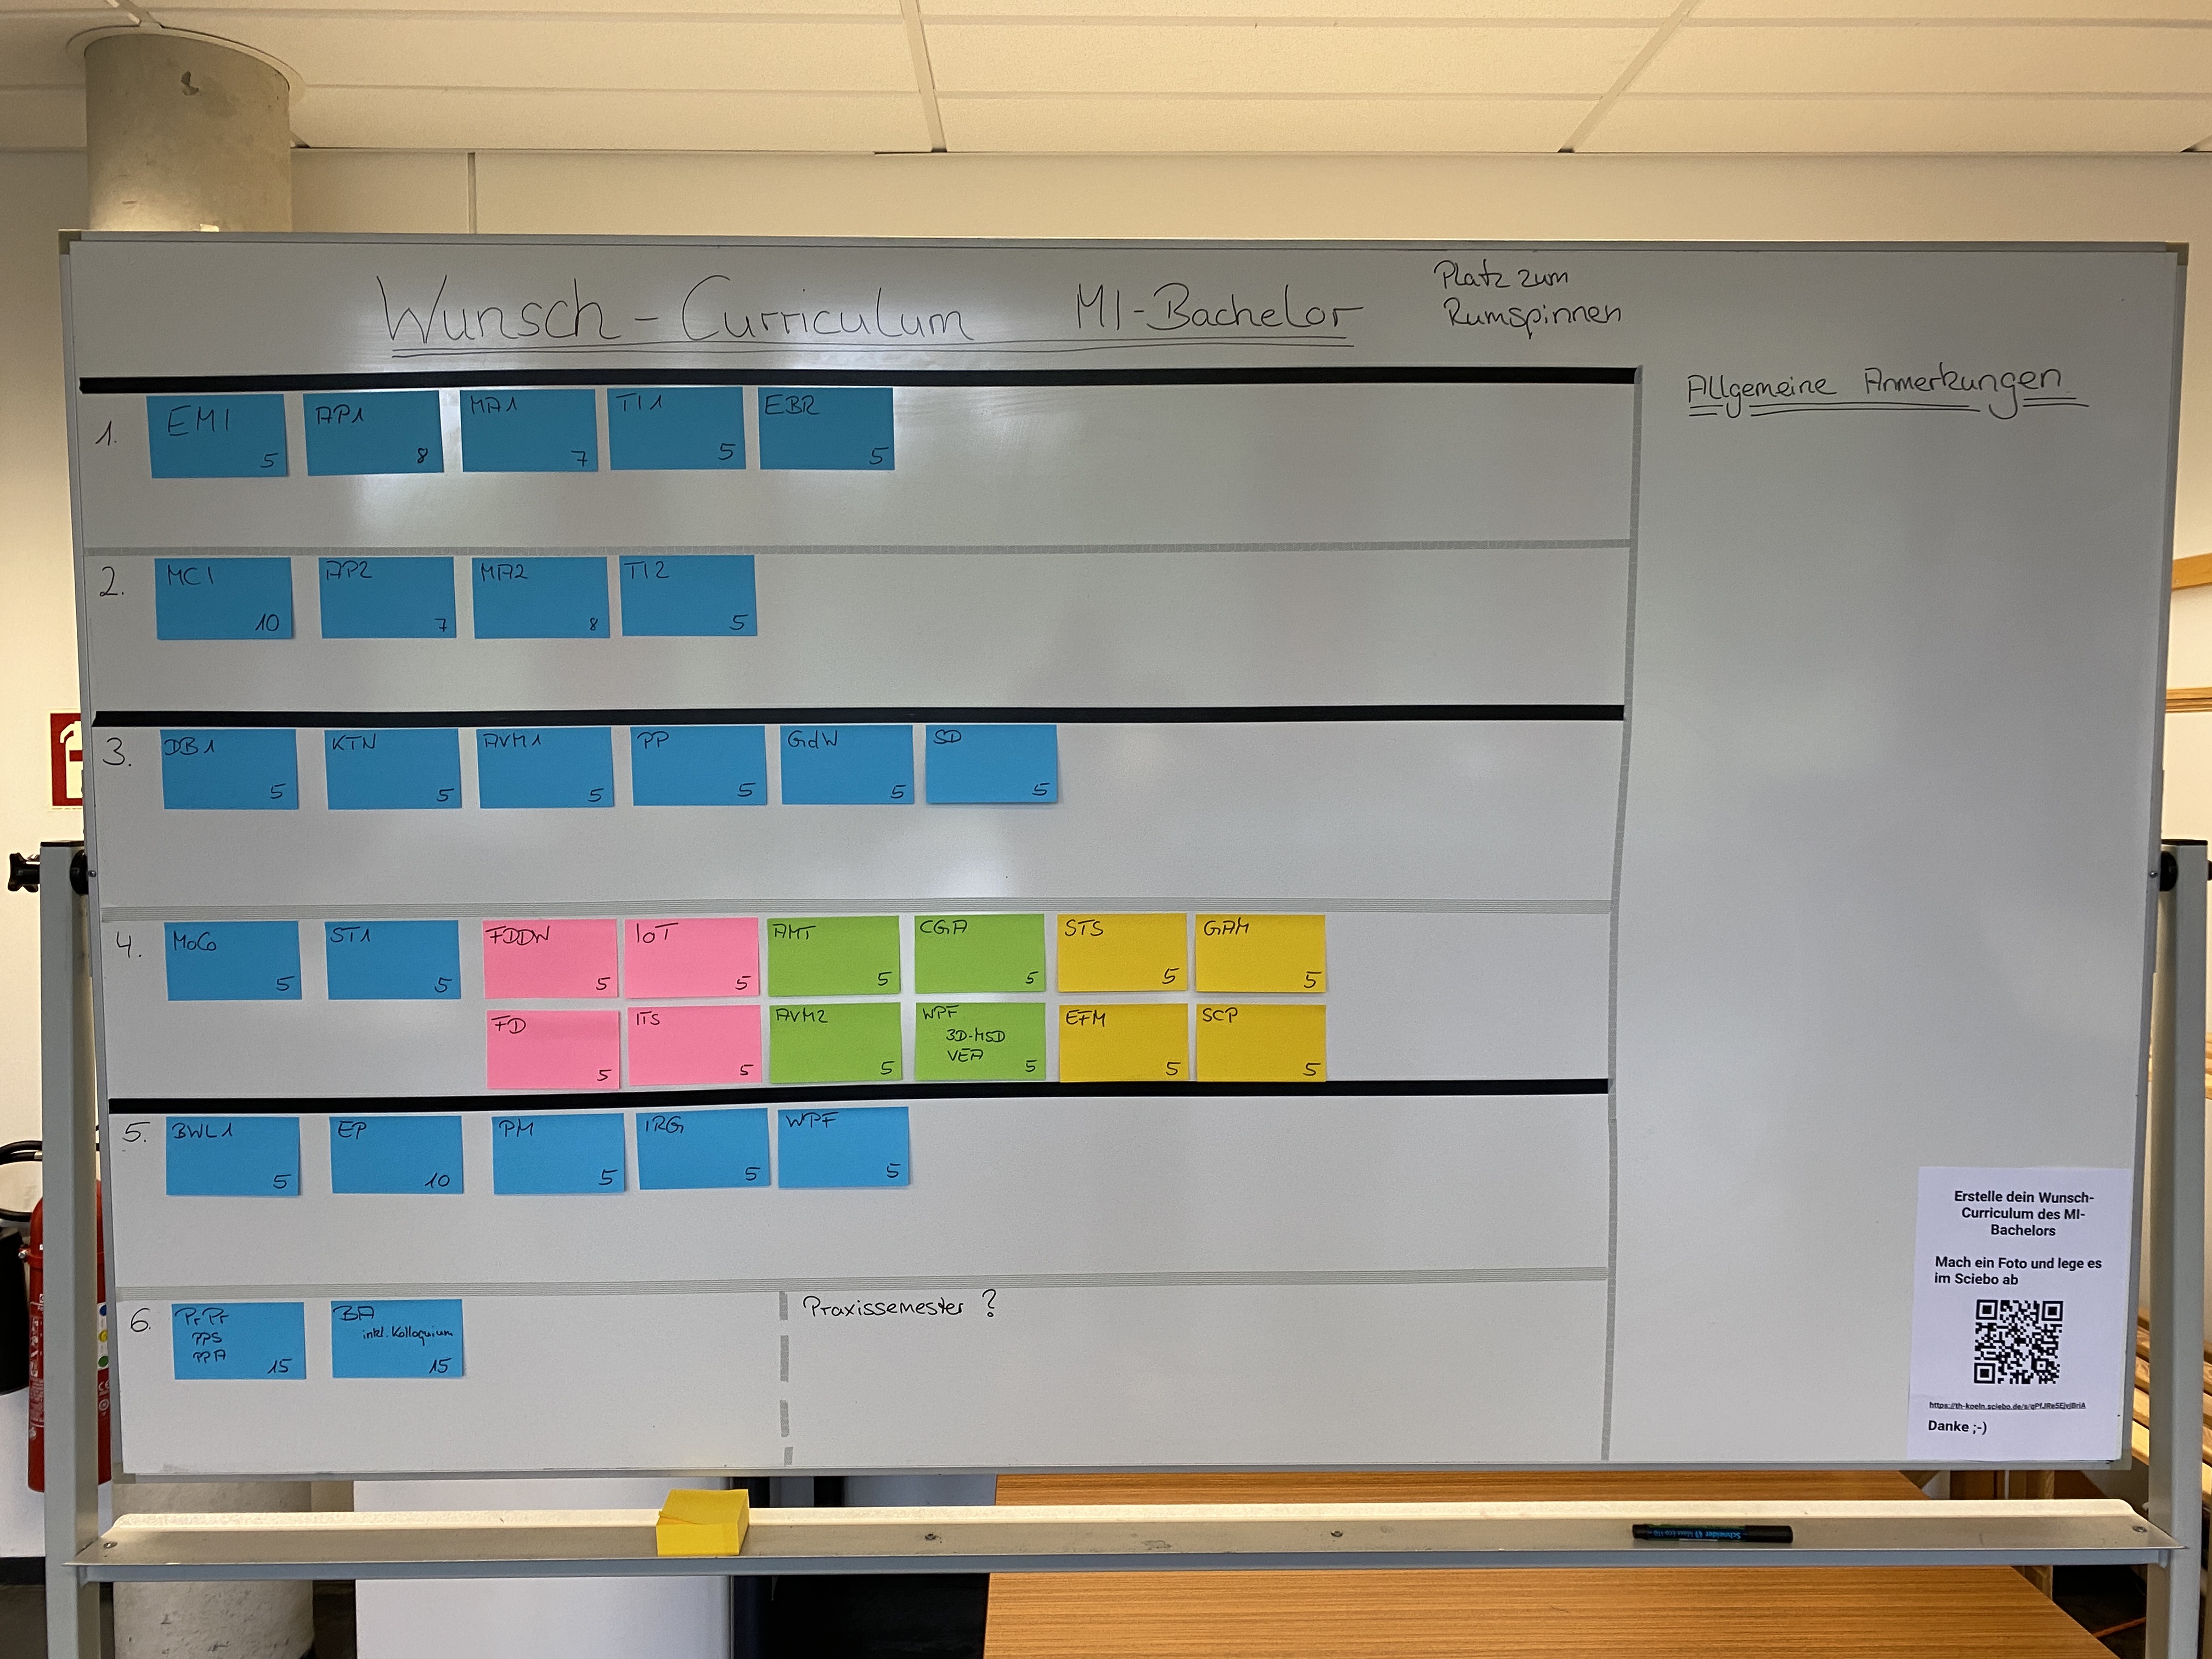 Wunsch-Curriculum MI-Bachelor
Platz zum
Rumspinnen
Allgemeine Anmerkungen
1.
EMI
5
AP1
8
MA1
7
TI1
5
EBR
5
2.
MCI
10
AP2
7
MA2
8
TI2
5
3.
DB1
5
KTN
5
AVM1
5
PP
5
GdW
5
SD
5
4.
MoCo
5
ST1
5
FDDW
5
IoT
5
AMT
5
CGA
5
STS
5
GAM
5
FD
5
ITS
5
AVM2
5
WPF
3D-MSD
VEA
5
EFM
5
SCP
5
5.
BWL1
5
EP
10
PM
5
IRG
5
WPF
5
6.
PrPr
PPS
PPA
15
BA
inkl. Kolloquium
15
Praxissemester ?
Erstelle dein Wunsch-
Curriculum des MI-
Bachelors
Mach ein Foto und lege es
im Sciebo ab
Danke ;-)
Schneider